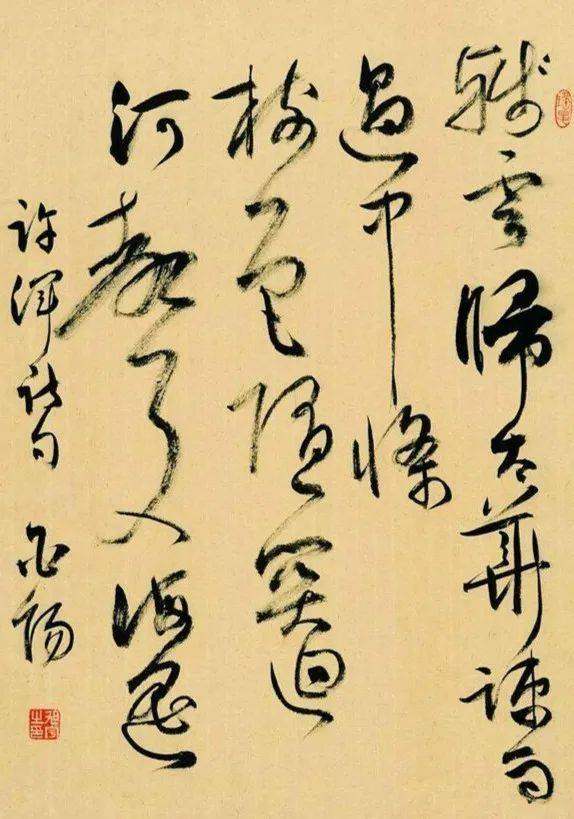 殘雲歸太華疎雨
過中條
樹色隨關迥
河聲入海遙
許渾詩句